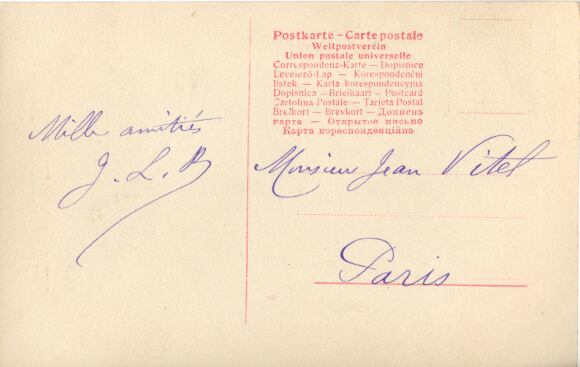 Postkarte – Carte postale
Weltpostverein
Union postale universelle
Correspondenz-Karte – Dopisnice
Levelező-Lap – Korespondenční
lístek – Karta korespondencyjna
Dopisnica – Briefkaart – Postcard
Cartolina Postale – Tarjeta Postal
Brefkort – Brevkort – Дописна
карта – Открытое письмо
Карта кореспонденційна
Mille amitiés
J. L. B
Monsieur Jean Vitel
Paris